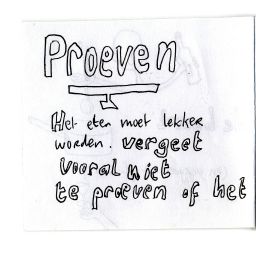 Proeven
Het eten moet lekker
worden. vergeet
vooral niet
te proeven of het